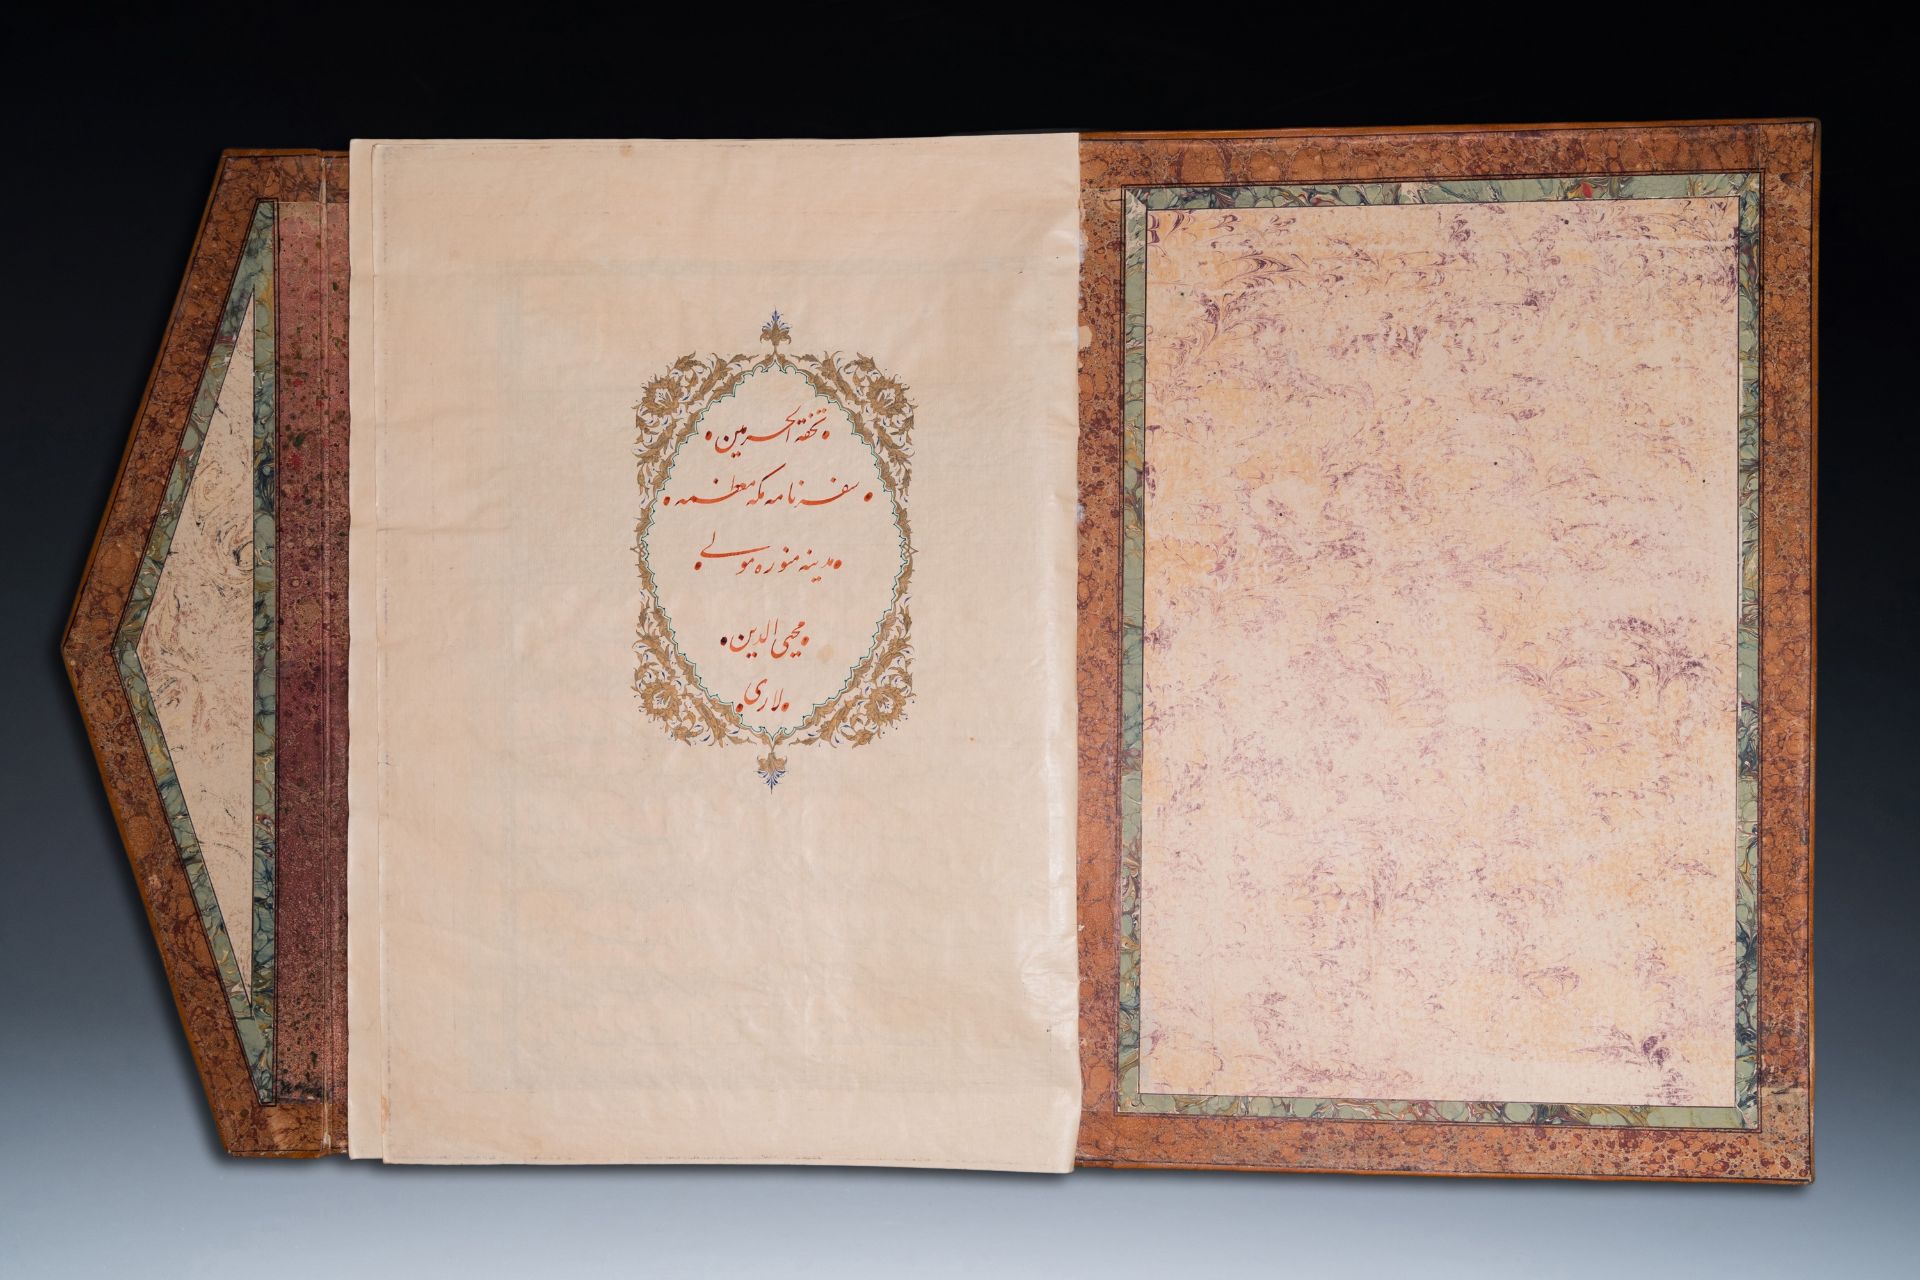 تحفة الحرمین
سفرنامه مکه معظمه
مدینه منوره مولی
محیی الدین
لاری